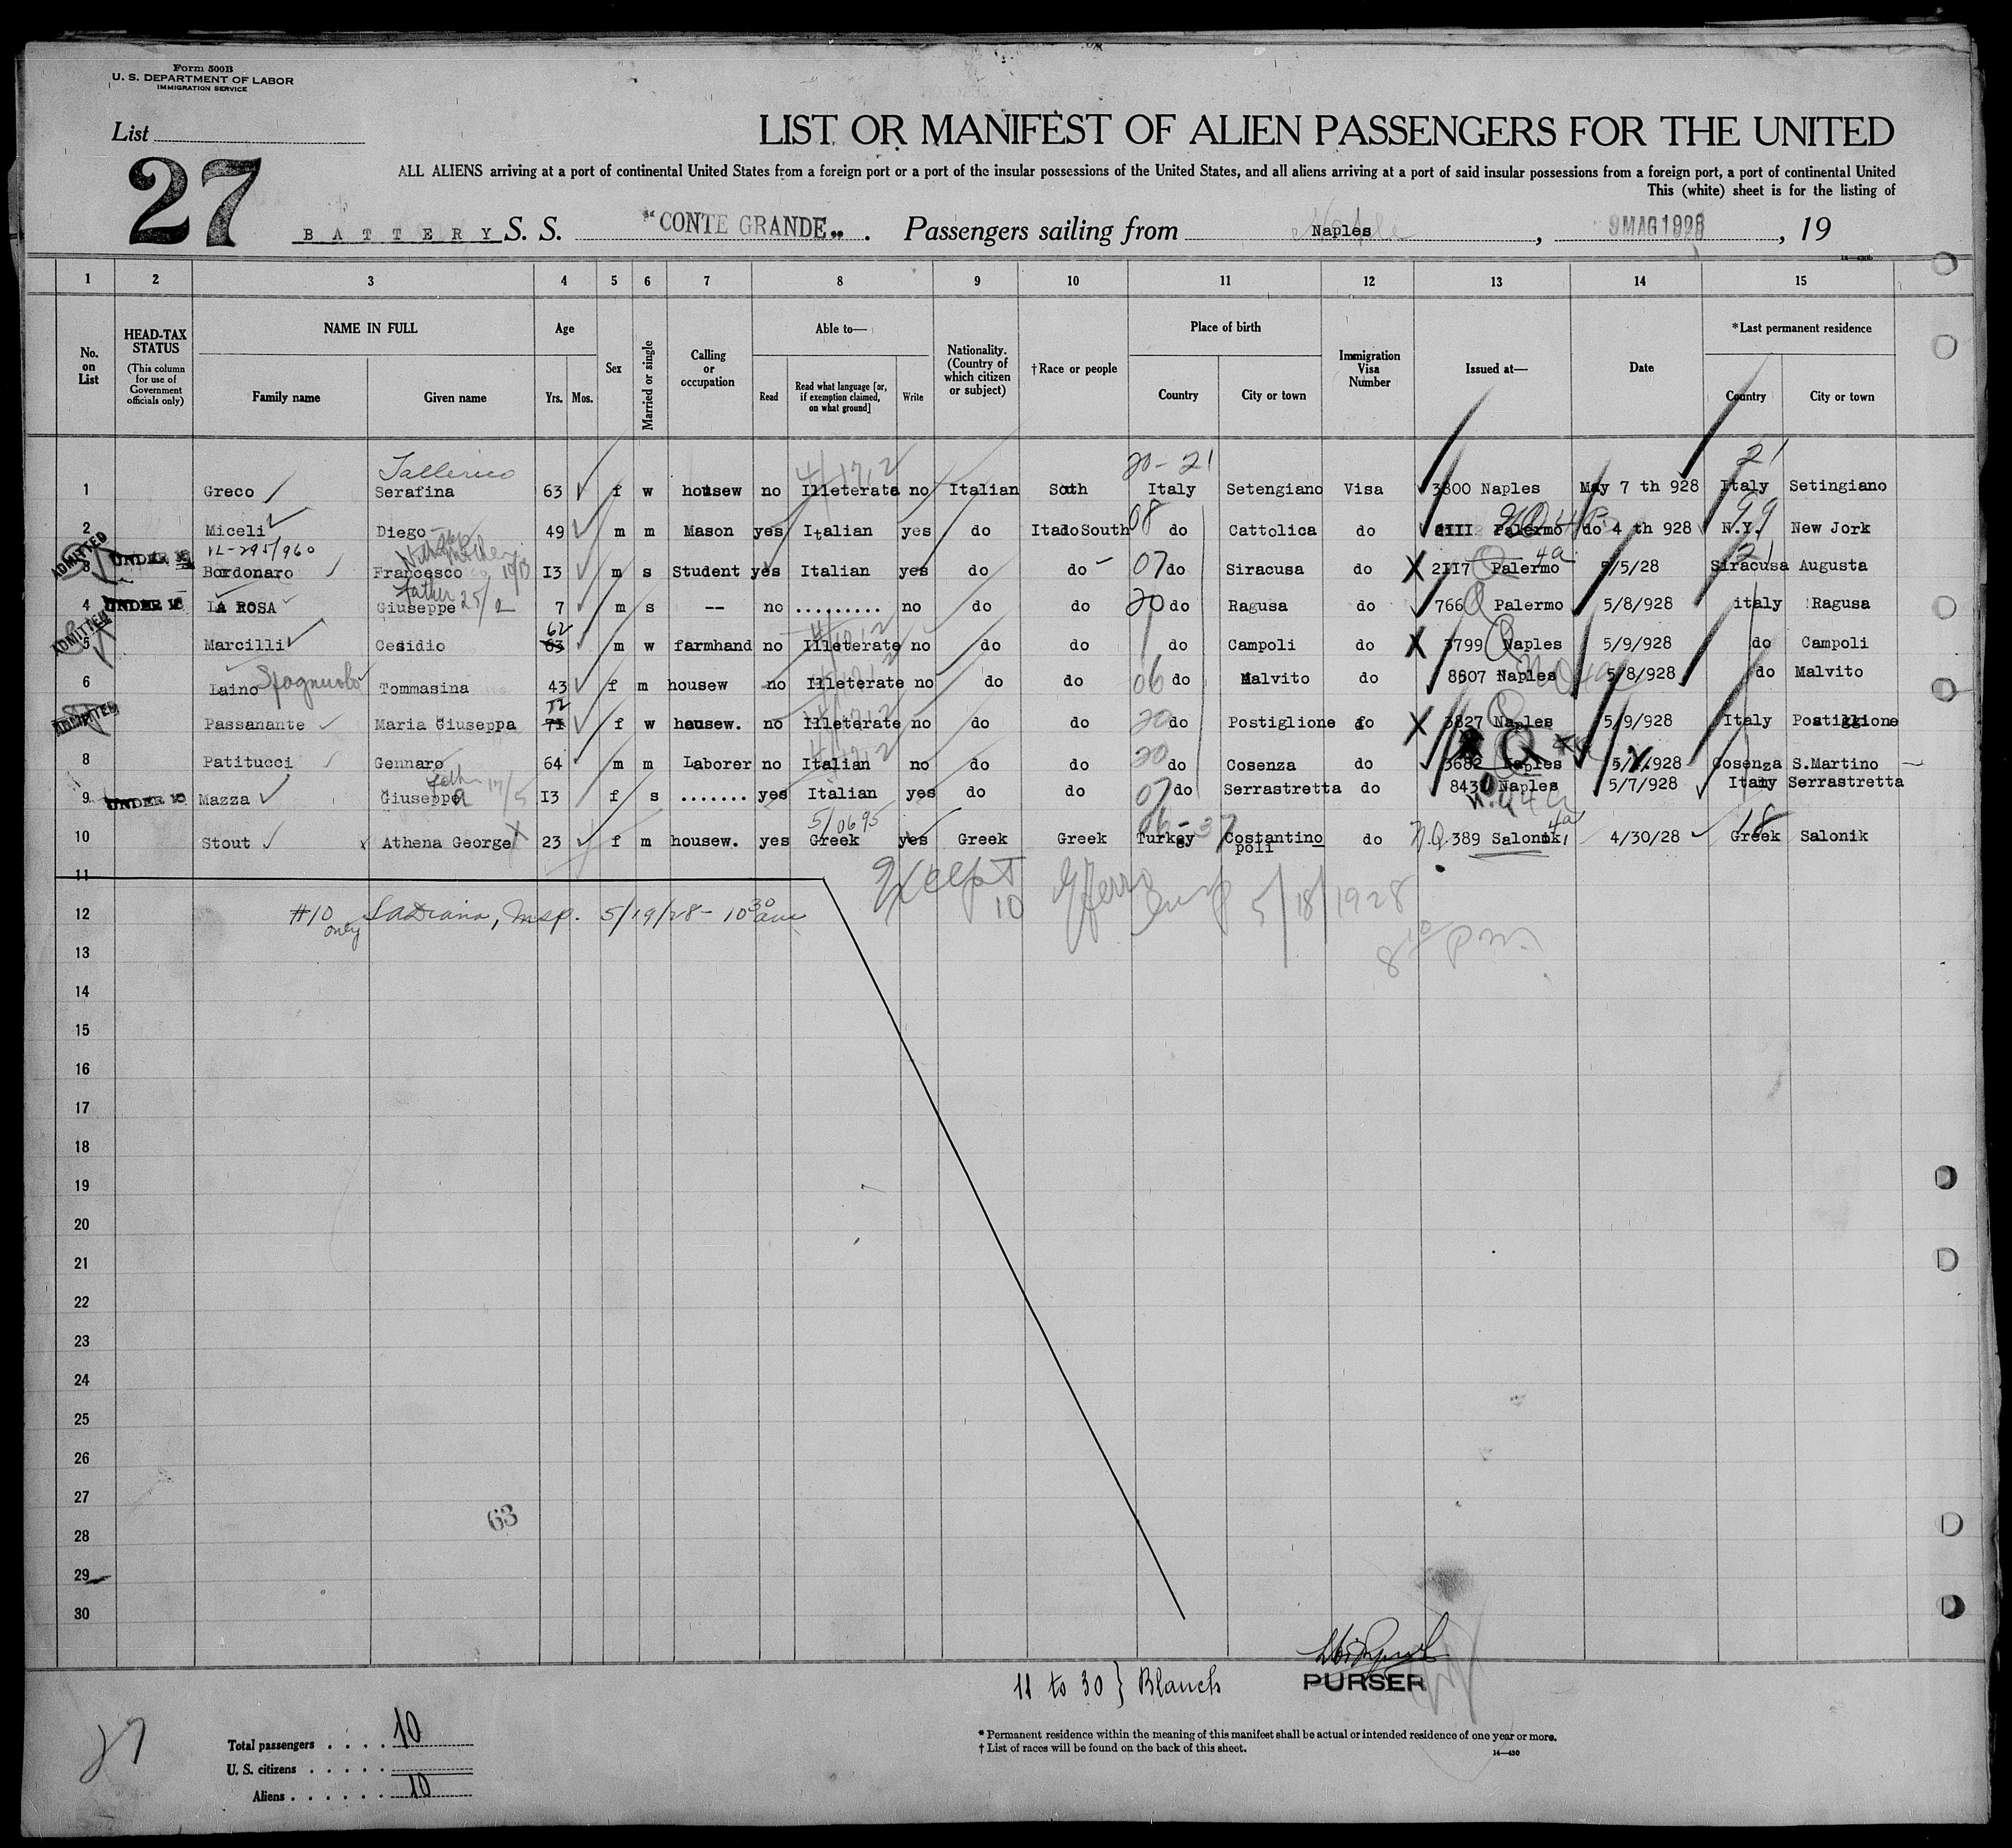 Form 500B
U. S. DEPARTMENT OF LABOR
IMMIGRATION SERVICE
List
27
LIST OR MANIFEST OF ALIEN PASSENGERS FOR THE UNITED
ALL ALIENS arriving at a port of continental United States from a foreign port or a port of the insular possessions of the United States, and all aliens arriving at a port of said insular possessions from a foreign port, a port of continental United
This (white) sheet is for the listing of
B A T T E R Y S. S. "CONTE GRANDE" Passengers sailing from Naples, 9 MAG 1928, 19
1 2 3 4 5 6 7 8 9 10 11 12 13 14 15
No. on List
HEAD-TAX STATUS
(This column for use of Government officials only)
NAME IN FULL
Family name
Given name
Age
Yrs. Mos.
Sex
Married or single
Calling or occupation
Able to—
Read
Read what language [or, if exemption claimed, on what ground]
Write
Nationality. (Country of which citizen or subject)
†Race or people
Place of birth
Country
City or town
Immigration Visa Number
Issued at—
Date
*Last permanent residence
Country
City or town
Tallerico 4/1712 20-21 21
1 Greco Serafina 63 f w housew no Illeterate no Italian South Italy Setengiano Visa 3800 Naples May 7 th 928 Italy Setingiano
2 Miceli Diego 49 m m Mason yes Italian yes do Itado South 08 do Cattolica do Palermo do 4 th 928 N.Y. New Jork 99
12-295/960
ADMITTED 3 UNDER 16 Bordonaro Francesco 13 m s Student yes Italian yes do do 07 do Siracusa do 2117 Palermo 5/5/28 Siracusa Augusta 21
Father 25/2
4 UNDER 16 LA ROSA Giuseppe 7 m s -- no ......... no do do 20 do Ragusa do 766 Palermo 5/8/928 italy Ragusa
ADMITTED 5 Marcilli Cesidio 62 63 m w farmhand no Illeterate no do do do Campoli do 3799 Naples 5/9/928 do Campoli
6 Laino Spagnuolo Tommasina 43 f m housew no Illeterate no do do 06 do Malvito do 8807 Naples 5/8/928 do Malvito
ADMITTED Passanante Maria Giuseppa 72 71 f w housew. no Illeterate no do do 20 do Postiglione do 3827 Naples 5/9/928 Italy Postiglione
8 Patitucci Gennaro 64 m m Laborer no Italian no do do 20 do Cosenza do 3682 Naples 5/ /928 Cosenza S.Martino
9 UNDER 16 Mazza Giuseppa 13 f s ....... yes Italian yes do do 07 do Serrastretta do 8430 Naples 5/7/928 Italy Serrastretta
5/0695
10 Stout Athena George 23 f m housew. yes Greek yes Greek Greek Turkey Costantinopoli do N.Q. 389 Salonik 4/30/28 Greek Salonik 18
11
Except 10 5/18/1928
12 #10 only LaDiana, Insp. 5/19/28- 10 30 am
8 10 P m.
13
14
15
16
17
18
19
20
21
22
23
24
25
26
27
63
28
29
30
11 to 30 } Blanch
PURSER
27
Total passengers . . . . 10
U. S. citizens . . . . .
Aliens . . . . . . 10
* Permanent residence within the meaning of this manifest shall be actual or intended residence of one year or more.
† List of races will be found on the back of this sheet.
14—430